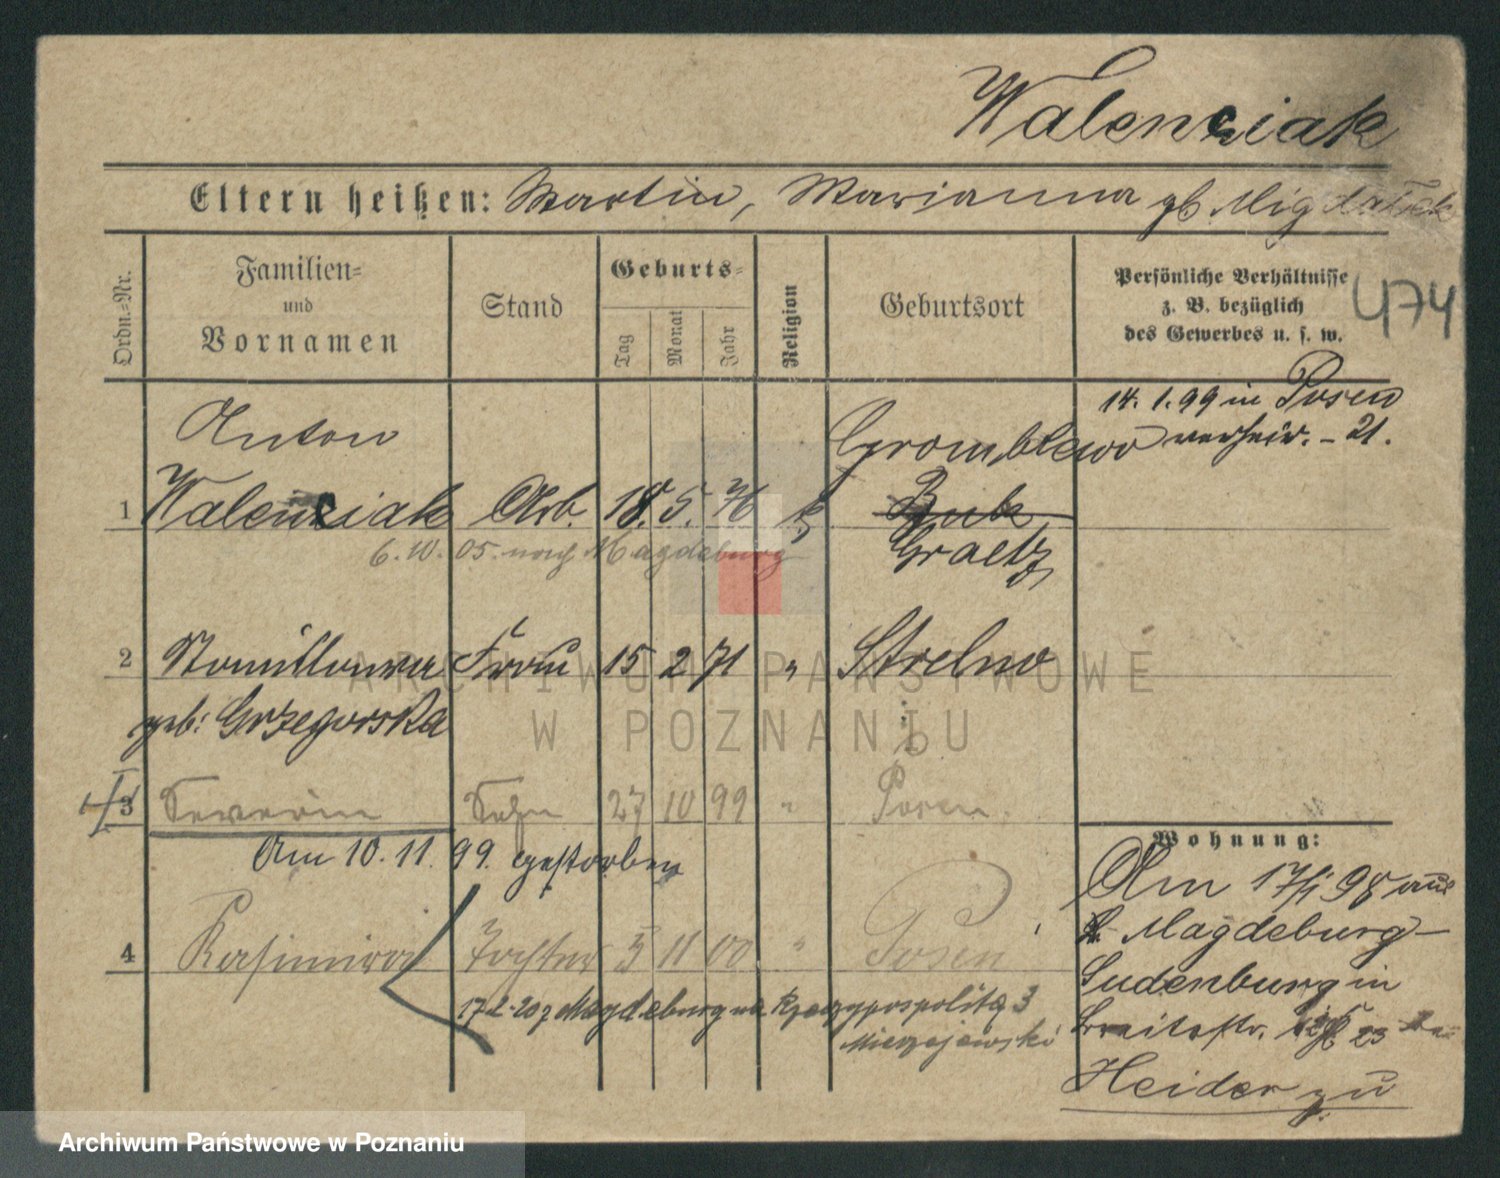 Walenciak
Eltern heißen: Martin, Marianna gb. Migdałek
Ordn.-Nr.
Familien-
und
Vornamen
Stand
Geburts-
Tag
Monat
Jahr
Religion
Geburtsort
Persönliche Verhältnisse
z. B. bezüglich
des Gewerbes u. s. w.
474
14. 1. 99 in Posen
verheir. - 21.
Anton
1 Walenciak Arb. 18. 5. 76 k Gromblewo
Buk
Graetz
6. 10. 05. nach Magdeburg
2 Stanislawa Frau 15 2 71 " Strelno
geb: Grzegorska
3 Severin Sohn 27 10 99 " Posen.
Am 10. 11. 99. gestorben
4 Kasimira Tochter 3 11 00 " Posen
17-2-20 z Magdeburga Rzeczypospolitą 3
Mierzejewski
Wohnung:
Am 17/1 98 aus
Magdeburg-
Sudenburg in
Breitestr. 23
Heider zu
ARCHIWUM PAŃSTWOWE
W POZNANIU
Archiwum Państwowe w Poznaniu